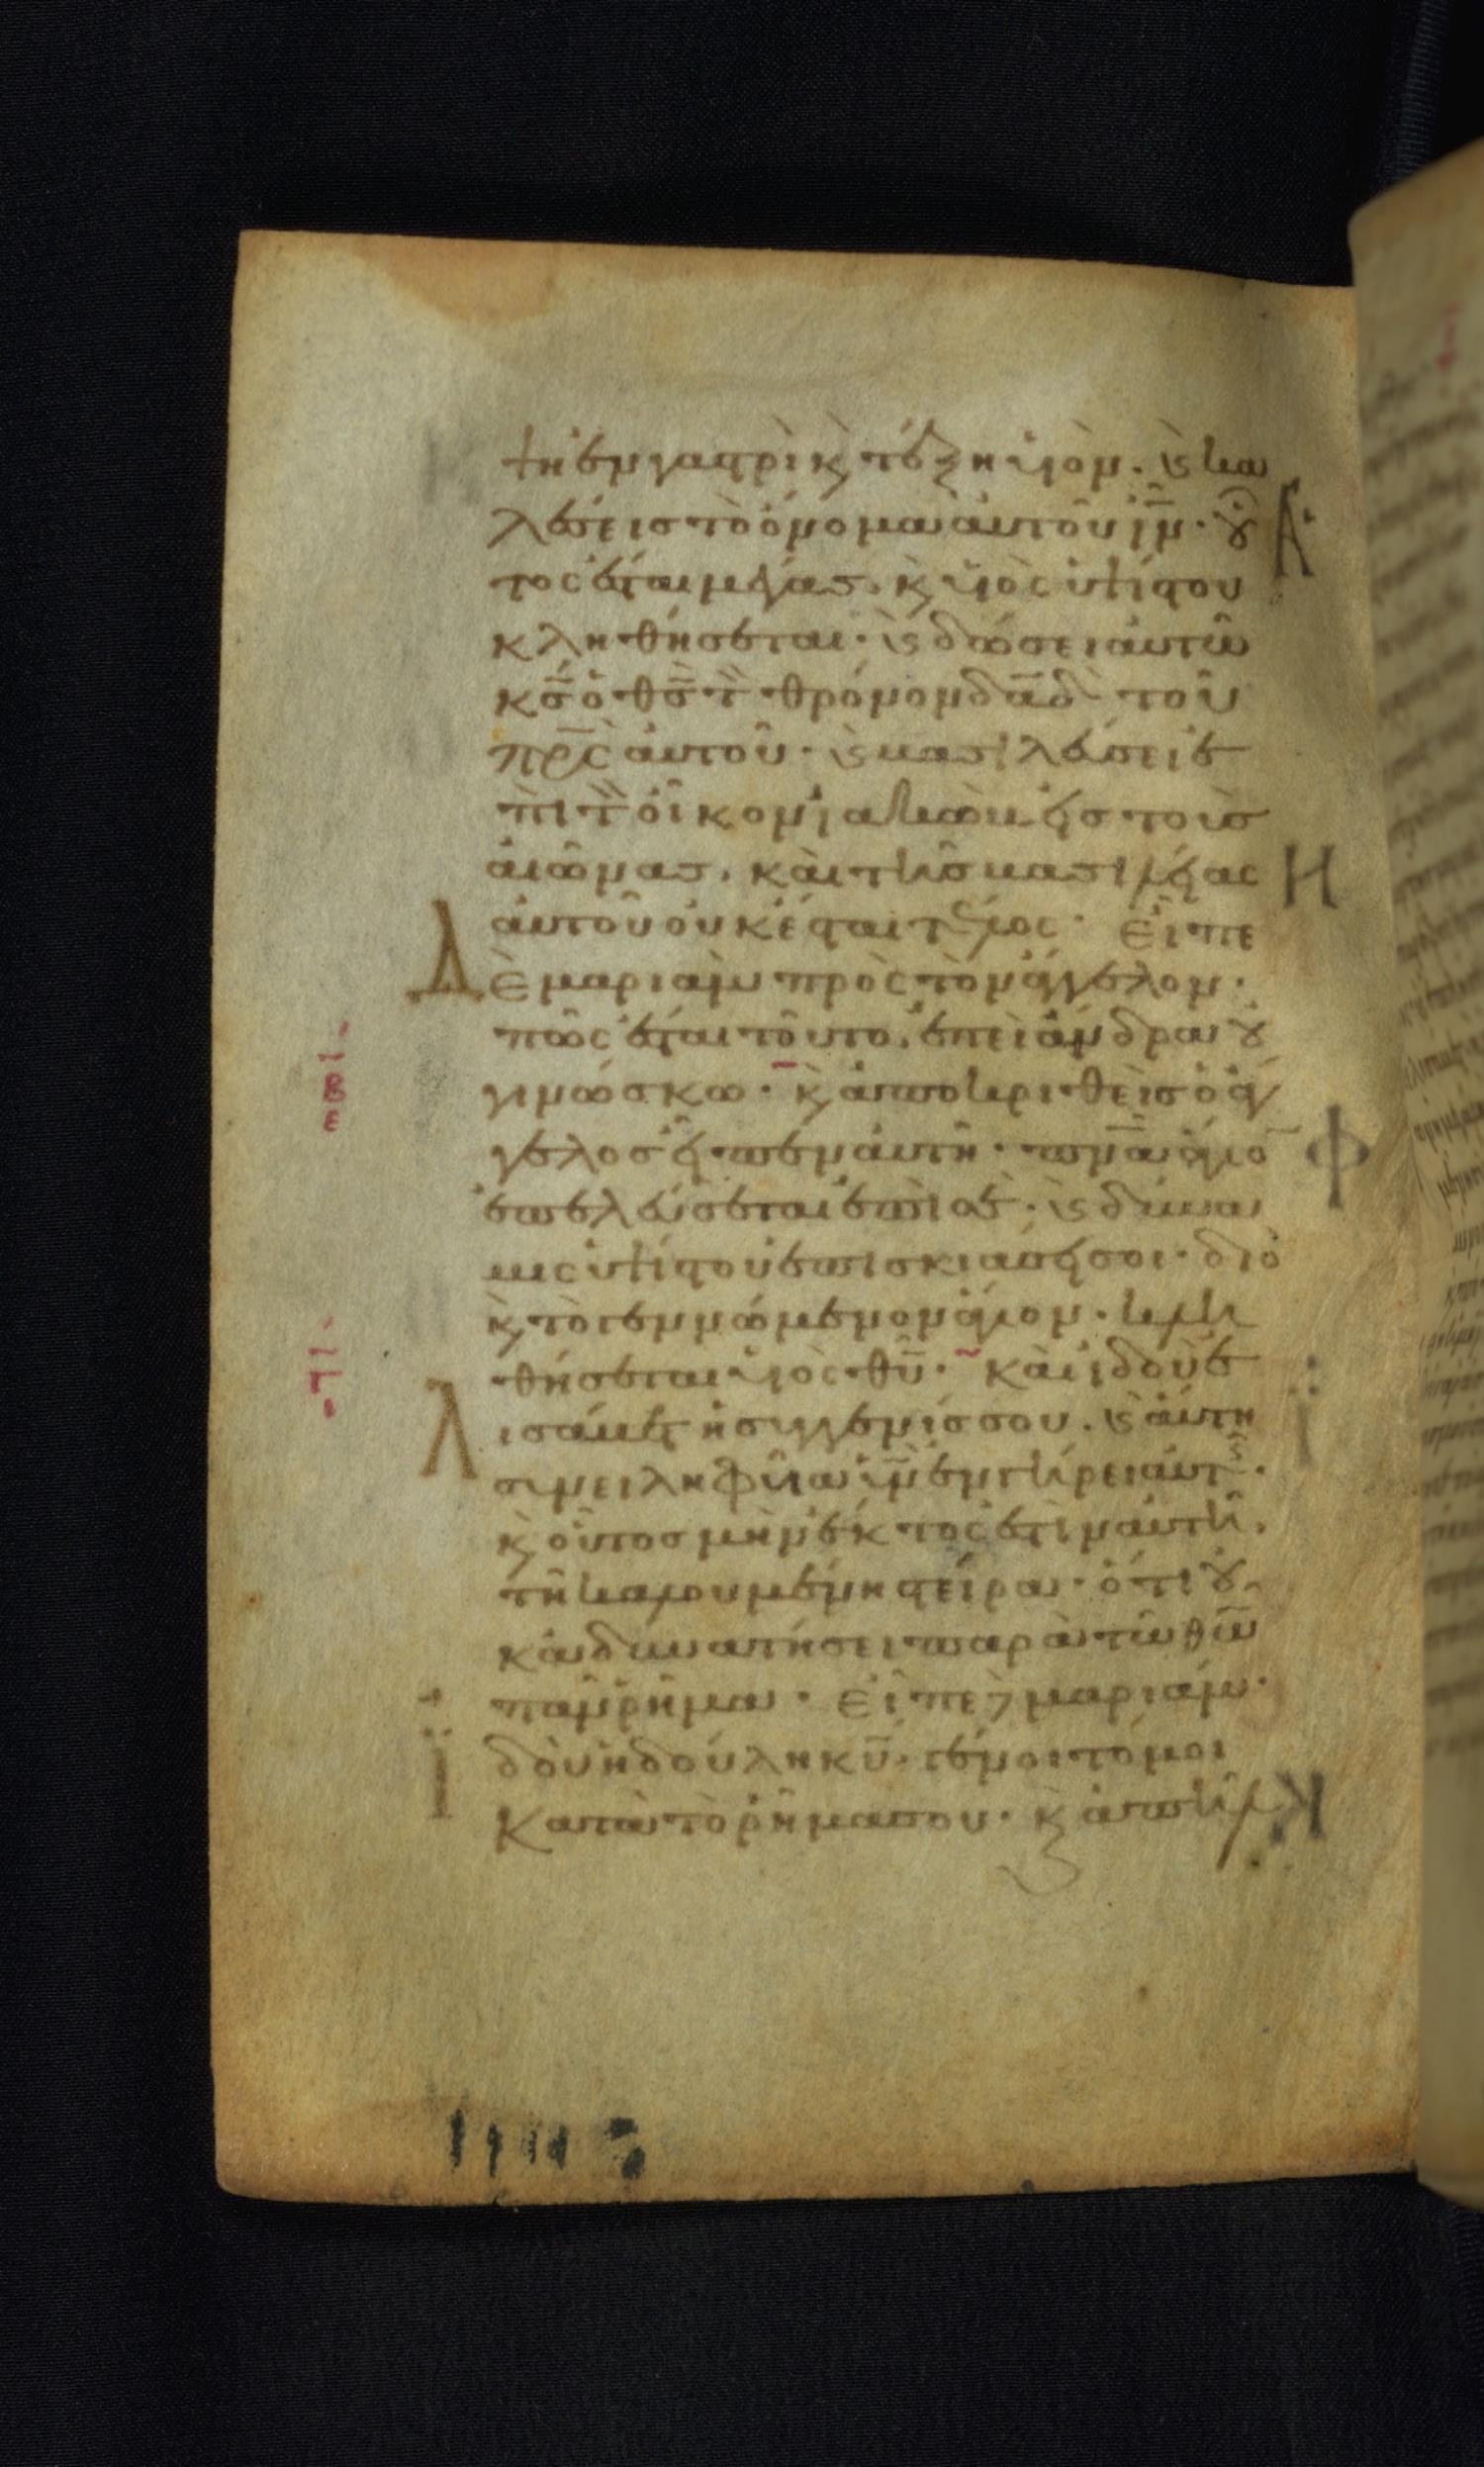 ψη ἐν γαστρὶ κ τέξη υἱὸν· κ κα
λέσεις τὸ ὄνομα αὐτοῦ ιν· οὗ
τος ἔσται μέγας· κ υἱὸς ὑψίστου
κληθήσεται· κ δώσει αὐτῶ
κς ὁ θς τ θρόνον δαδ τοῦ
πρς αὐτοῦ· κ βασιλεύσει ἐ
πὶ τ οἶκον ἰακὼβ εἰς τοὺς
αἰῶνας· καὶ τῆς βασιλείας
αὐτοῦ οὐκ ἔσται τέλος· Εἶπε
Δ
ὲ μαριὰμ πρὸς τὸν ἄγγελον·
πῶς ἔσται τοῦτο, ἐπεὶ ἄνδρα οὐ
γινώσκω· κ ἀποκριθεὶς ὁ ἄγ
γελος εἶπεν αὐτῆ· πνα ἅγιο
ἐπελεύσεται ἐπὶ σέ· κ δύνα
μις ὑψίστου ἐπισκιάσει σοι· διὸ
κ τὸ γεννώμενον ἅγιον· κλη
θήσεται υἱὸς θυ· καὶ ἰδοὺ ἐ
Λ
ισάβετ ἡ συγγενίς σου· κ αὐτὴ
συνειληφυῖα υν ἐν γήρει αὐτῆς·
κ οὗτος μὴν ἕκτος ἐστὶν αὐτῆ,
τῆ καλουμένη στείρα· ὅτι οὐ
κ ἀδυνατήσει παρὰ τῶ θω
πᾶν ῥῆμα· Εἶπε δὲ μαριάμ·
Ϊ
δοὺ ἡ δούλη κυ· γένοιτό μοι
κατὰ τὸ ῥῆμα σου· κ ἀπῆλ
ιβ
ε
ιγ
ι